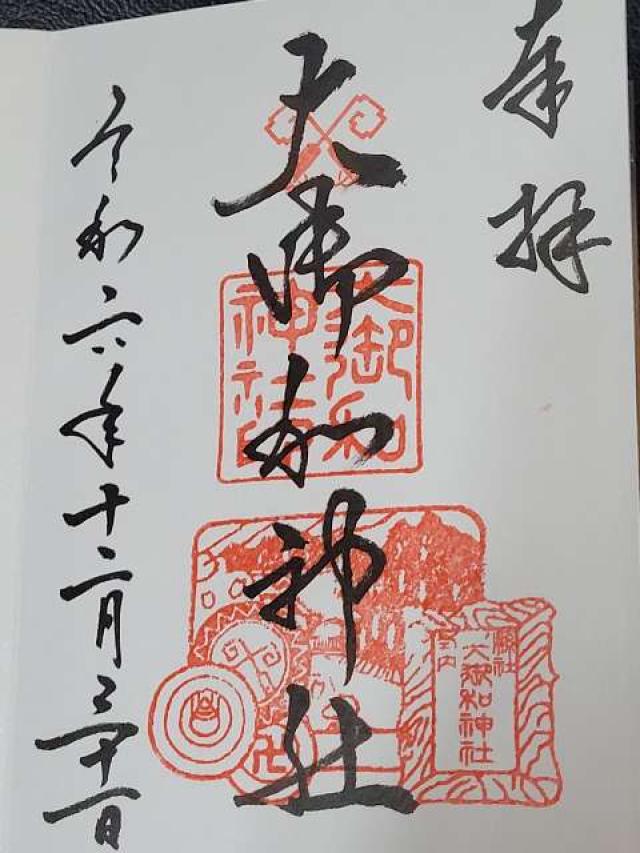 奉拝
大御和神社
大御和
神社印
大御和神社
令和六年十二月三十一日